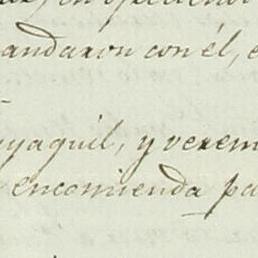 andaron con él, e
yaquil, y verem
encomienda pa